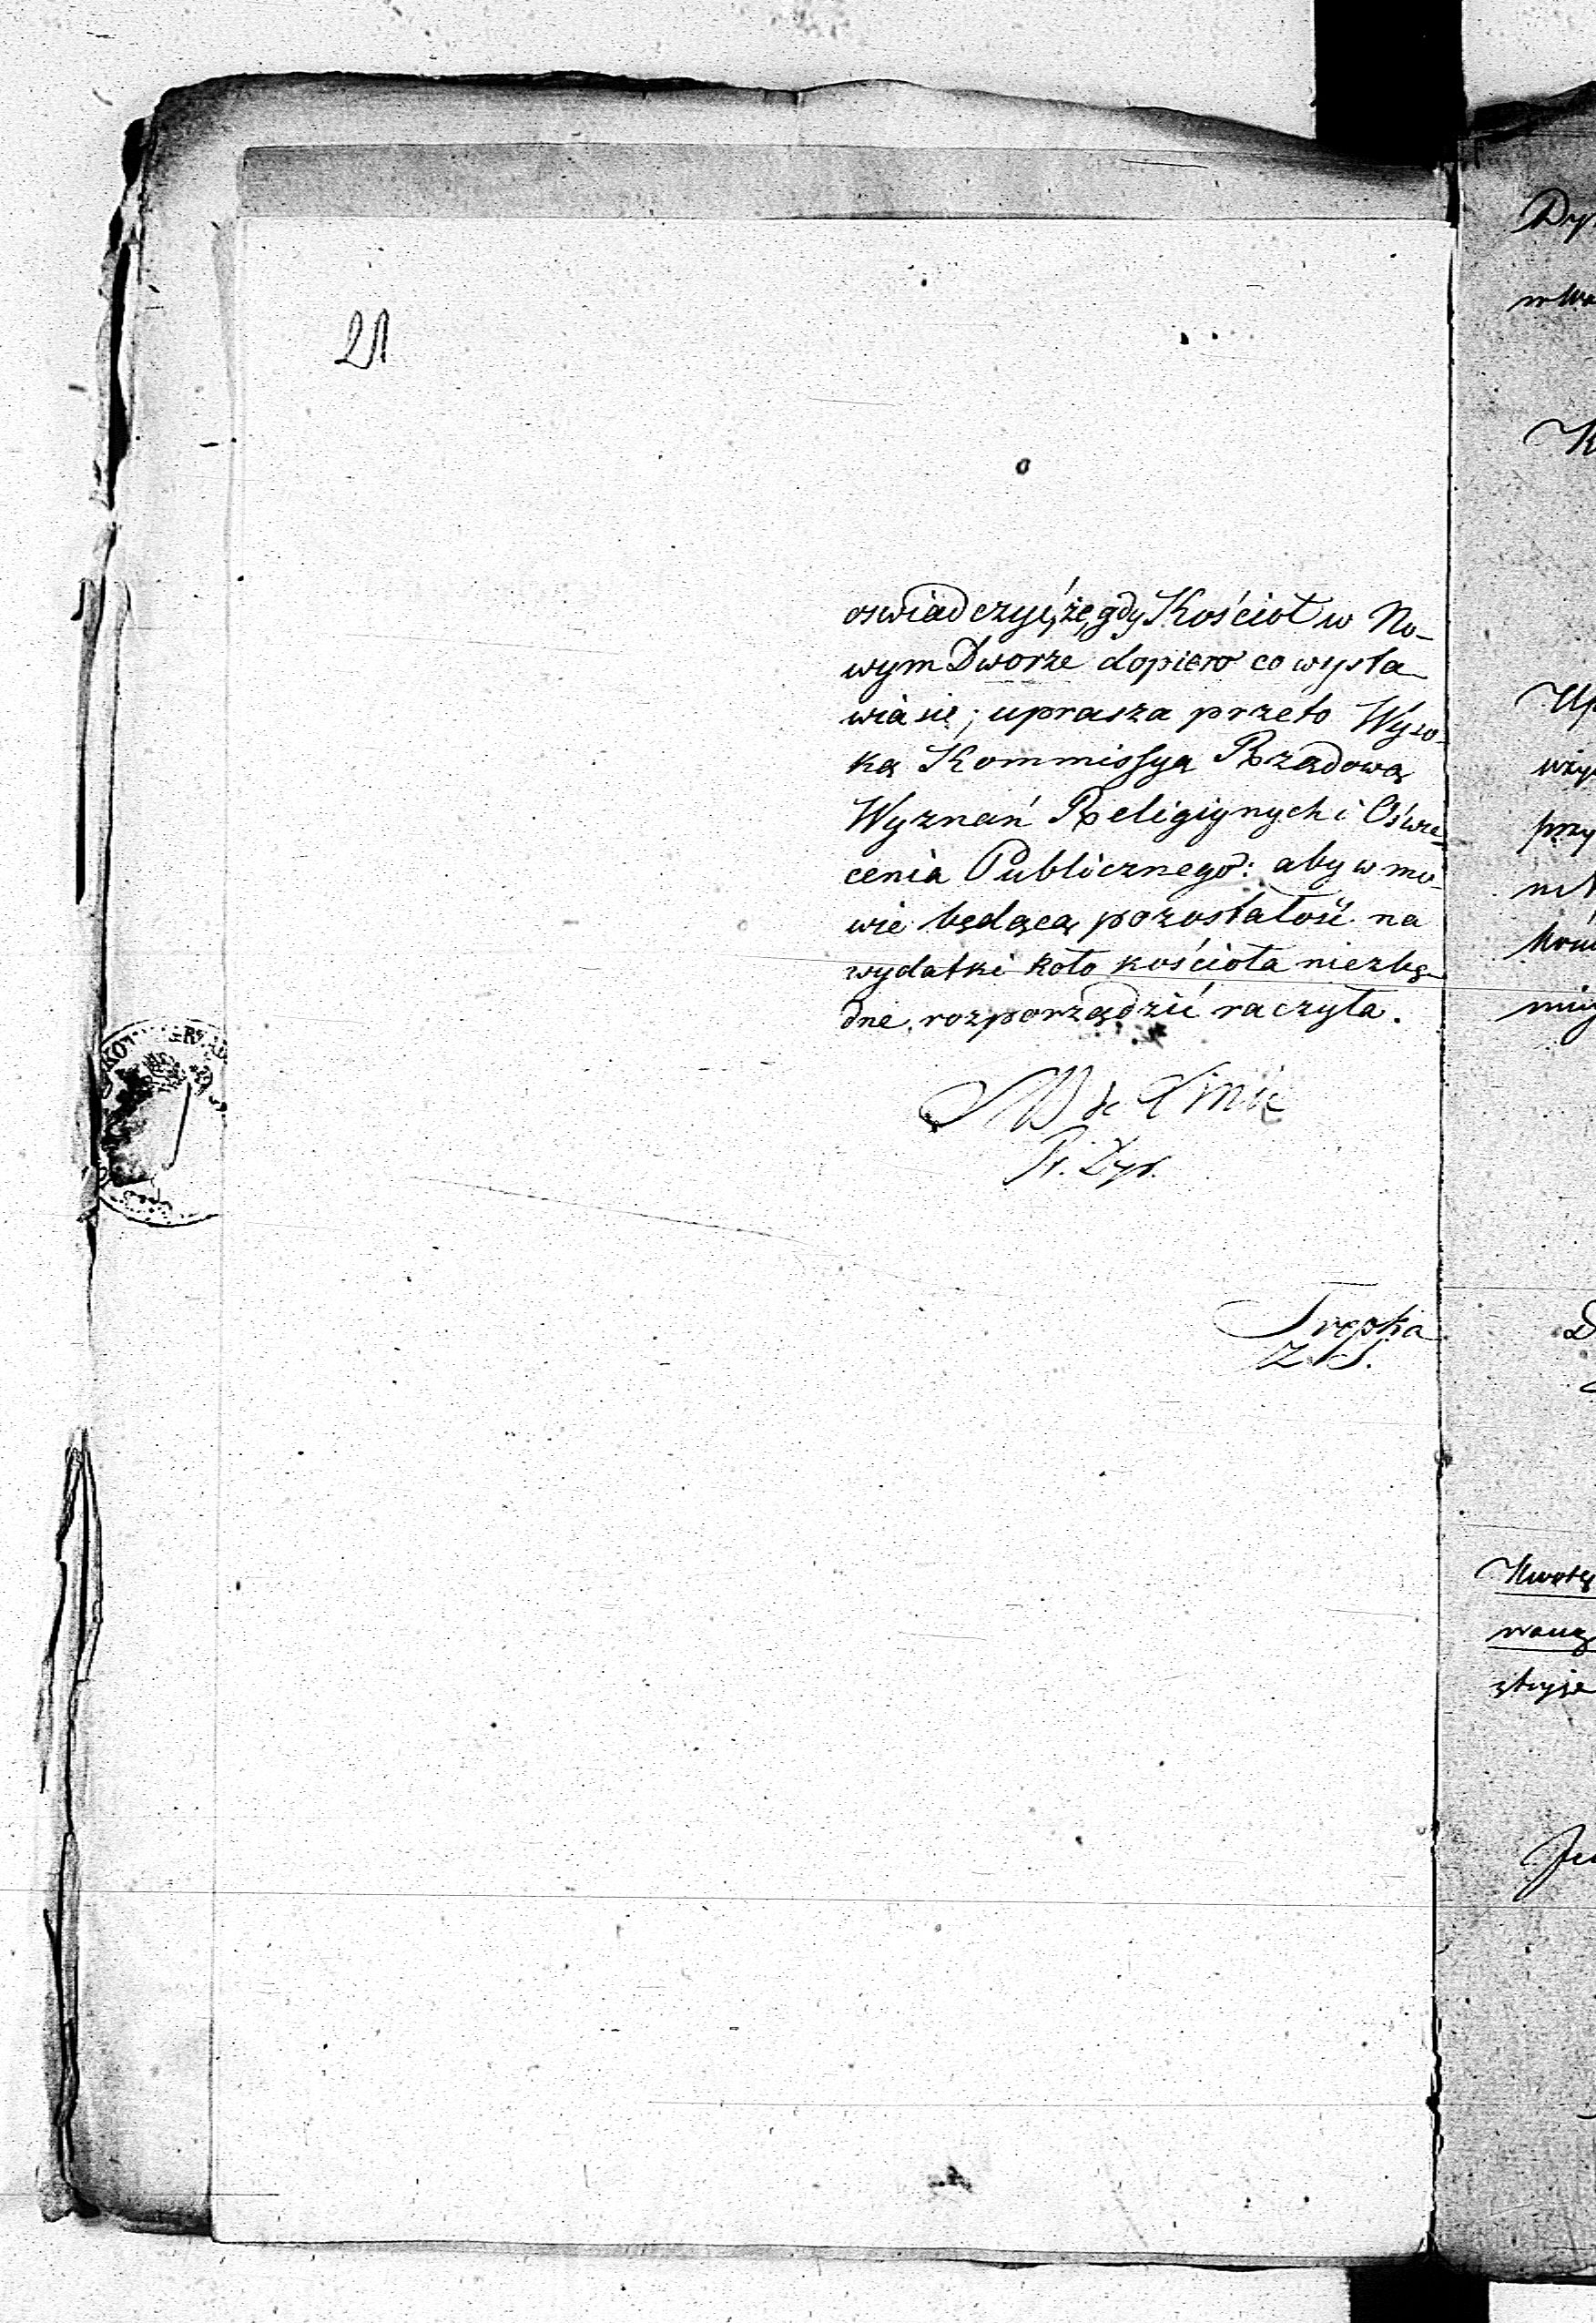 21
oswiadczyć, że, gdy Kościoł w No-
wym Dworze dopiero co wysta-
wia sie; uprasza przeto Wyso-
ką Kommissyą Rządową
Wyznań Religiynych i Oświe-
cenia Publicznego: aby w mo-
wie będącą pozostałość na
wydatki koło kościoła niezbę-
dne rozporządzić raczyła.
Trepka
Z. S.
Dy
K
przy